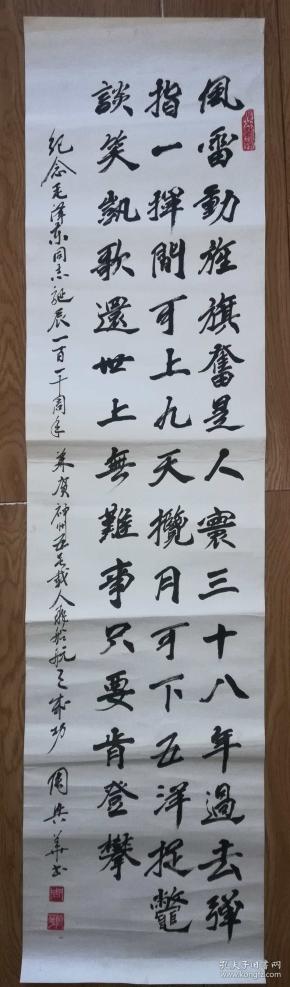 風雷動旌旗奮是人寰三十八年過去彈
指一揮間可上九天攬月可下五洋捉鱉
談笑凱歌還世上無難事只要肯登攀
紀念毛澤东同志誕辰一百一十周年并賀神州五号載人飛船航天成功
周兴華书
孔夫子旧书网